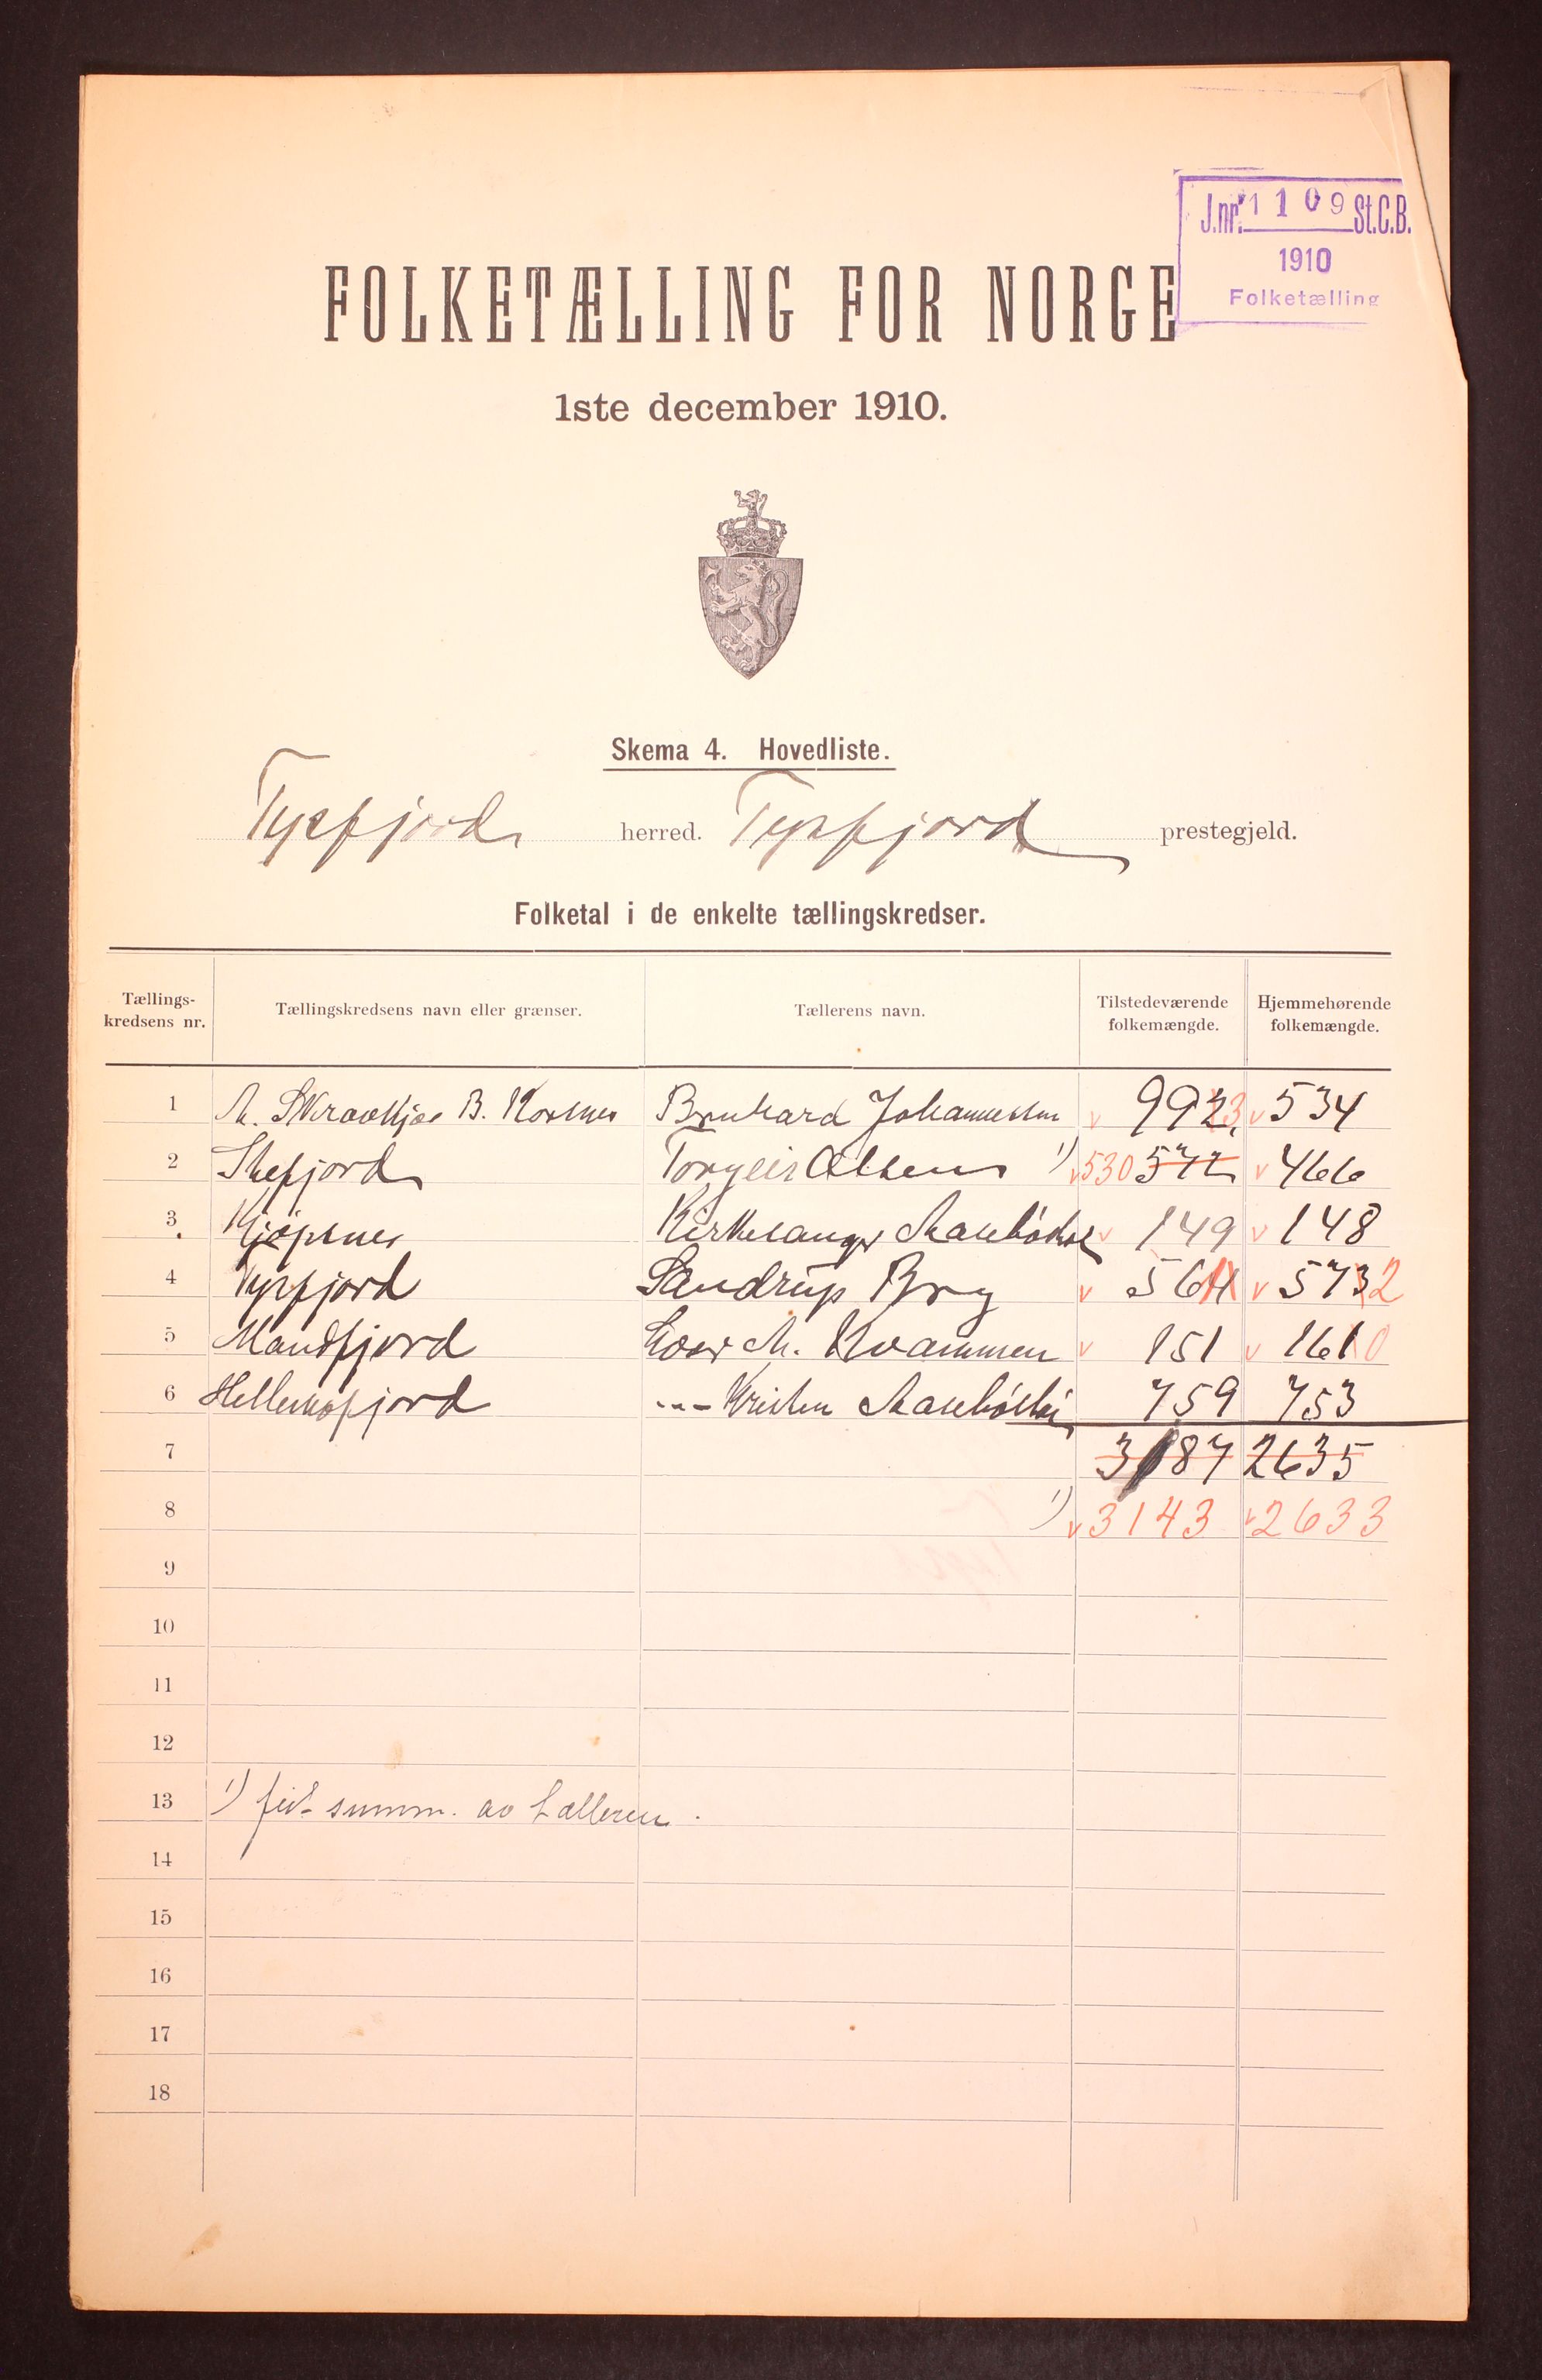 J.nr. 1109 St.C.B.
1910
Folketælling
FOLKETÆLLING FOR NORGE
1ste december 1910.
Skema 4. Hovedliste.
Tysfjord herred. Tysfjord prestegjeld.
Folketal i de enkelte tællingskredser.
Tællings-kredsens nr. Tællingskredsens navn eller grænser. Tællerens navn. Tilstedeværende folkemængde. Hjemmehørende folkemængde.
1 A. Skraavkjær B. Korsnes Bernhard Johannessen v 9923 v 534
2 Stefjord Torgeir Olsen 1) v 530 572 v 466
3 Kjöpsnes Kirkesanger v 149 v 148
4 Tysfjord Sandrup Bry v 564 v 573 2
5 Mandfjord Loar M. Kvammen v 151 v 161 0
6 Hellemofjord Kristen 759 753
7 3187 2635
8 1) v 3143 v 2633
9
10
11
12
13 1) feil summ. av tælleren.
14
15
16
17
18